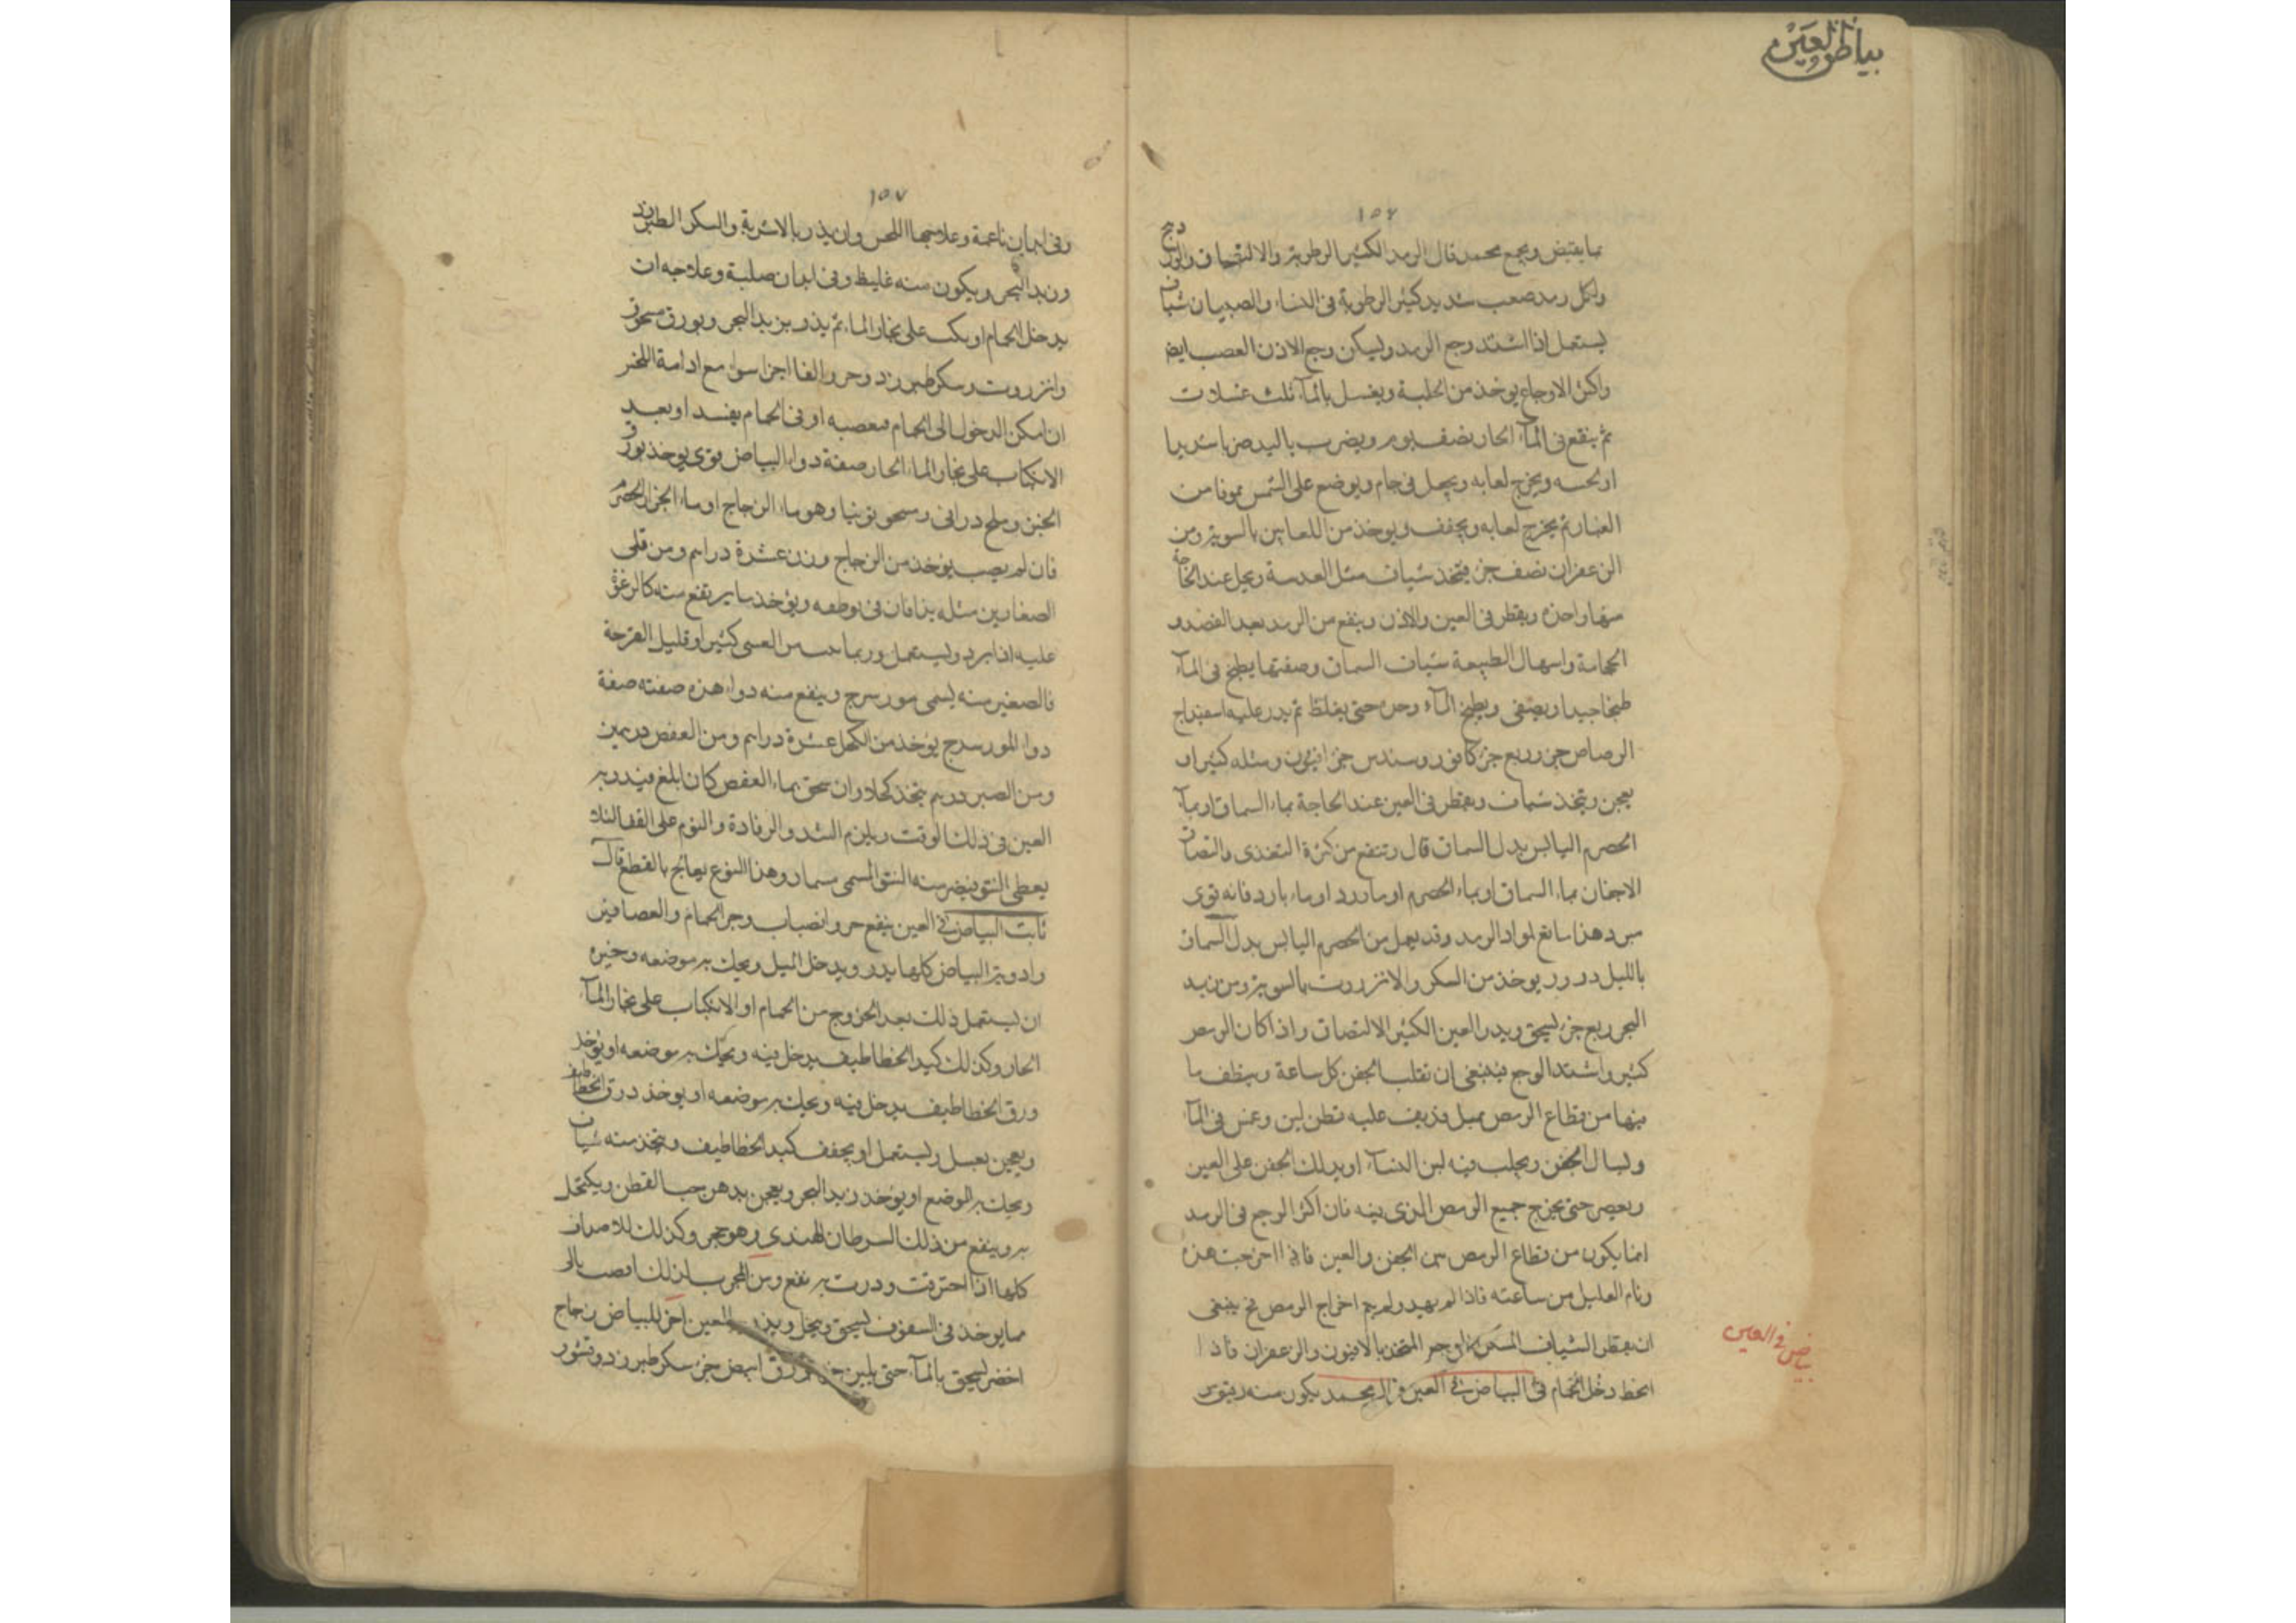 بياض العين
١٥٦
مما يقبض ويجمع محمد قال الرمد الكثير الرطوبة والالتصاق
ولكل رمد صعب شديد كثير الرطوبة فى النساء والصبيان شياف
يستعمل اذا اشتد وجع الرمد وليسكن وجع الاذن العصب ايضا
واكثر الاوجاع يوخذ من الحلبة ويغسل بالمآء ثلث غسلات
ثم ينقع فى المآء الحار نصف يوم ويضرب باليد ضربا شديدا
ويخرج لعابه ويجعل فى جام ويوضع على الشمس
ثم يخرج لعابه ويجفف ويوخذ من اللعابين بالسوية ومن
الزعفران نصف جزء فيتخذ شياف مثل العدسة ويحل عند الحاجة
منها واحدة ويقطر فى العين والاذن وينفع من الرمد بعد الفصد و
الحجامة واسهال الطبيعة شياف السماق وصفتها يطبخ فى المآء
طبخا جيدا ويصفى ويطبخ المآء وحده حتى يغلظ ثم يذر عليه اسفيداج
الرصاص جزء وربع جزء كافور وسدس جزء افيون ومثله كثيرا و
يعجن ويتخذ شياف ويقطر فى العين عند الحاجة بماء السماق او بمآء
الحصرم اليابس بدل السماق قال وتنفع من كثرة التغذى والتصاق
الاجفان بماء السماق او بماء الحصرم او ماورد او ماء بارد فانه قوى
مبرد هذا مانع لمواد الرمد وقد يعمل من الحصرم اليابس بدل السماق
بالليل ذرور يوخذ من السكر والانزروت بالسوية ومن زبد
البحر ربع جزء يسحق ويذر العين الكثير الالتصاق واذا كان الرمص
كثير واشتد الوجع فينبغى ان تقلب الجفن كل ساعة وينظف ما
فيها من قطاع الرمص بميل قد يلف عليه قطن لين وغمس فى المآء
ويسال الجفن ويحلب فيه لبن النسآء او يدلك الجفن على العين
ويعصر حتى يخرج جميع الرمص الذى فيه فان اكثر الوجع فى الرمد
انما يكون من قطاع الرمص بين الجفن والعين فاذا اخرجت هذه
ونام العليل من ساعته فاذا لم يهيد ولم يتم اخراج الرمص فح ينبغى
ان يقطر الشياف المسكن للوجع المتخذ بالافيون والزعفران فاذا
انحط دخل الحمام فى البياض فى العين قال محمد يكون منه رقيق
بياض فى العين
١٥٧
وفى ابدان ناعمة وعلاجها اللحس وان يذر بالاشربة والسكر الطبرزد
وزبد البحر ويكون منه غليظ وفى ابدان صلبة وعلاجه ان
يدخل الحمام او يكب على بخار الماء ثم يذر بزبد البحر وبورق مسحوق
وانزروت وسكر طبرزد اجزا سواء مع ادامة اللحس
ان امكن الدخول الى الحمام او فى الحمام او بعد
الانكباب على بخار الماء الحار صفة دواء البياض قوى يوخذ بورق
الخبز وملح درانى وهو ماء الزجاج او ماء
فان لم يصب يوخذ من الزجاج وزن عشرة دراهم ومن قلى
الصفارين مثله يذافان فى بوطقه ويؤخذ ما يرتفع منه كالرغوة
عليه اذا برد ويستعمل وربما كثير او قليل القرحة
فالصغير منه يسمى مورسرج وينفع منه دواء هذه صفته صفة
دواء المورسرج يوخذ من الكحل عشرة دراهم ومن العفص درهمين
ومن الصبر درهم يتخذ كحلا وان سحق بماء العفص كان ابلغ
العين فى ذلك الوقت ويلزم الشد والرفادة والنوم على القفا لئلا
يعطى النتو فيصير منه النتو المسمى مسمار وهذا النوع يعالج بالقطع قال
ثابت البياض فى العين ينفع
وادوية البياض كلها يذر ويدخل الميل ويحك به موضعه وخيره
ان يستعمل ذلك بعد الخروج من الحمام او الانكباب على بخار المآء
الحار وكذلك كبد الخطاطيف يدخل فيه ويحك به موضعه او يوخذ
ورق الخطاطيف يدخل فيه ويحك به موضعه او يوخذ ذرق الخطاطيف
ويعجن بعسل ويستعمل او يجفف كبد الخطاطيف ويتخذ منه شياف
ويحك به الموضع او يوخذ زبد البحر ويعجن بدهن حب القطن ويكتحل
به وينفع من ذلك السرطان الهندى وهو حجر وكذلك للاصداف
كلها اذا احترقت وذرت به نفع ومن المجرب لذلك
مما يوخذ فى السفن يسحق وينخل ويذر العين اخر للبياض زجاج
اخضر يسحق بالمآء حتى يلين جزء بورق ابيض جزء سكر طبرزد وقشور